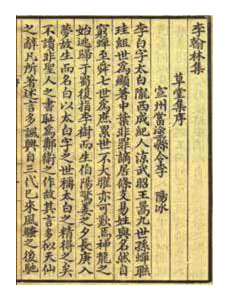 李翰林集
草堂集序
宣州當塗縣令李 陽冰
李白字太白隴西成紀人涼武昭王暠九世孫蟬聯
珪組世為顯著中葉非罪謫居條支易姓與名然自
窮蟬至舜七世為庶累世不大曜亦可歎焉神龍之
始逃歸于蜀復指李樹而生伯陽驚姜之夕長庚入
夢故生而名白以太白字之世稱太白之精得之矣
不讀非聖人之書恥為鄭衛之作故其言多似天仙
之辭凡所著述言多諷興自三代已來風騷之後馳